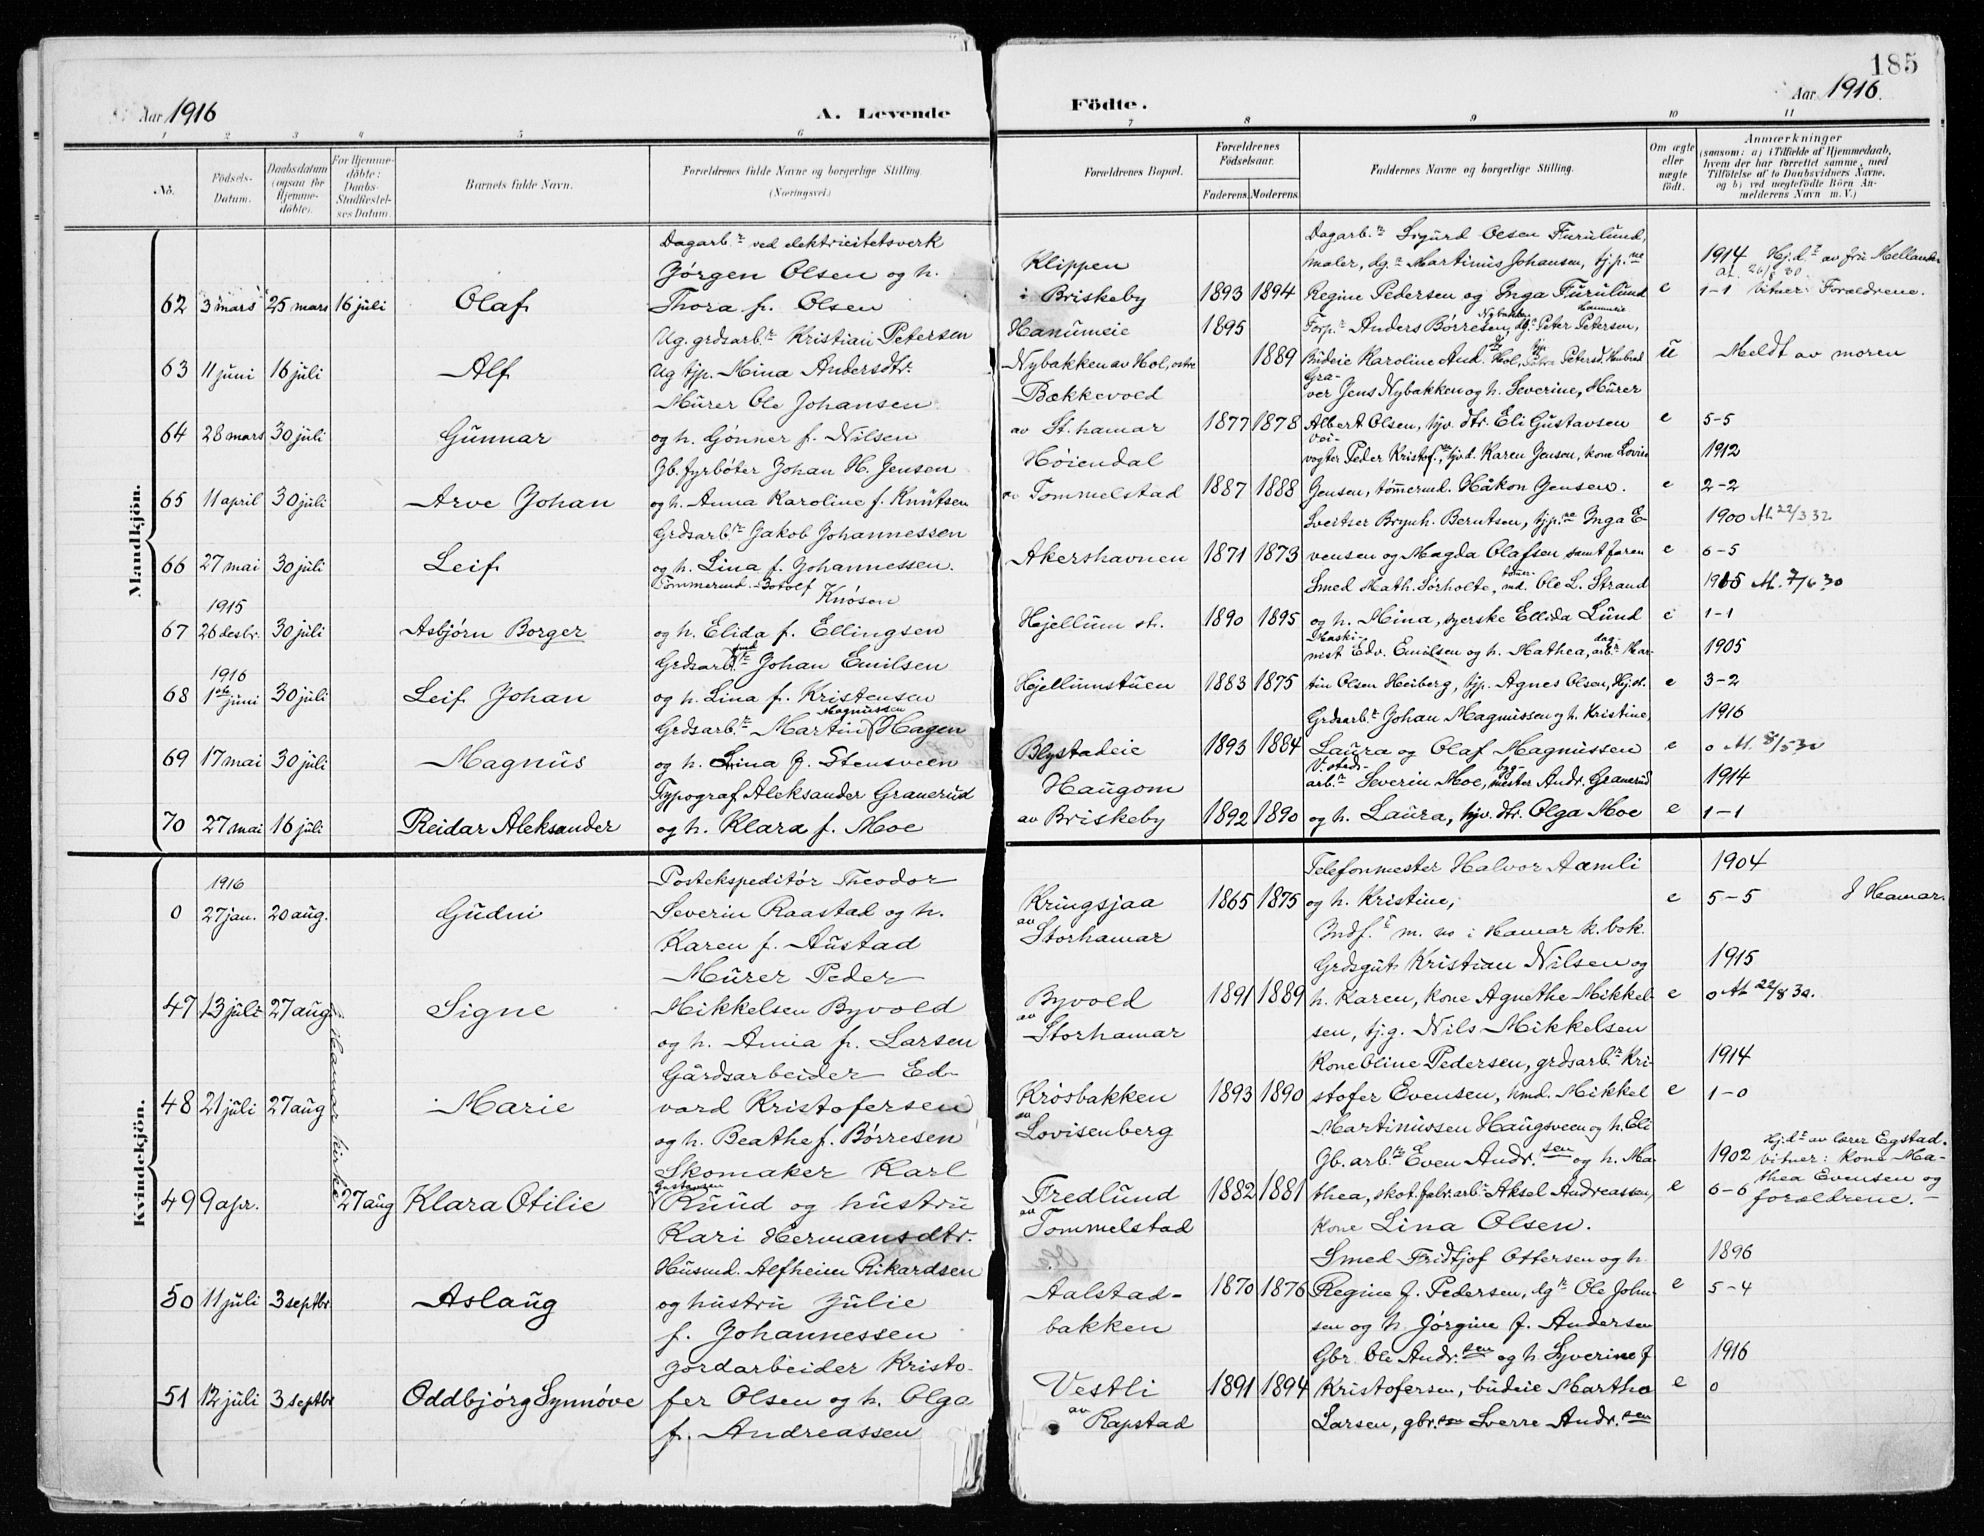 185
Aar 1916
A. Levende
Födte.
Aar 1916.
1 2 3 4 5 6 7 8 9 10 11
No.
Födsels-
Datum.
Daabsdatum
(ogsaa for
Hjemme-
döbte).
For Hjemme-
döbte:
Daabs-
Stadfæstel-
ses Datum.
Barnets fulde Navn.
Forældrenes fulde Navne og borgerlige Stilling.
(Næringsvei.)
Forældrenes Bopæl.
Forældrenes
Födselsaar.
Faderens. Moderens.
Faddernes Navne og borgerlige Stilling.
Om ægte
eller
uægte
födt.
Anmærkninger
(saasom: a) i Tilfælde af Hjemmedaab,
hvem der har forrettet samme, med
Tilföielse af to Daabsvidners Navne,
og b) ved uægtefödte Börn An-
melderens Navn m. V.)
Mandkjön.
62 3 mars 25 mars 16 juli Olaf
Dagarb.r ved elektricitetsverk
Jörgen Olsen og h.
Thora f. Olsen
Klippen
i Briskeby
1893 1894
Dagarb.r Sigurd Olsen Furulund,
maler, dg.r Martinus Johansen, tj.p.ne
Regine Pedersen og Inga Furulund
e
1914 Hj.d.t av fru Mellands
1-1 vitner: Forældrene.
63 11 juni 16 juli Alf
Ug. grdsarb.r Kristian Petersen
Ug tjp. Mina Andersdtr.
Hanumeie
Nybakken av Hol, østre
1895
1889
Forp.r Anders Børresen, dg.r Peter Petersen,
Budeie Karoline And.
u
Meldt av moren
64 28 mars 30 juli Gunnar
Murer Ole Johansen
og h. Gönner f. Nilsen
Bækkevold
av St. hamar
1877 1878
Gra-
ver Jens Nybakken og h. Severine, Murer
Albert Olsen, hjv. dtr. Eli Gustavsen
e
5-5
65 11 april 30 juli Arve Johan
Jb. fyrbøter Johan H. Jensen
og h. Anna Karoline f. Knutsen
Høiendal
av Tommelstad
1887 1888
vogter Peder Kristof., hjv.d. Karen Jensen, kone Lovise
Jensen, tømmermd. Håkon Jensen.
e
1912
2-2
66 27 mai 30 juli Leif
Grdsarb.r Jakob Johannessen
og h. Lina f. Johannessen.
Akershavnen
1871 1873
Sveitser Brynh. Berntsen, tjp.ne Inga E-
vensen og Magda Olafsen samt faren
e
1900 At. 22/3 32
6-5
1915
67 26 desbr. 30 juli Asbjørn Borger
Tømmermd. Botolf
Knósen
og h. Elida f. Ellingsen
Hjellum st.
1890 1895
Smed Math. Sørholte, md. Ole L. Strand
og h. Mina, syerske Ellida Lund
e
1915 At. 7/6 30
1-1
1916
68 1ste juni 30 juli Leif Johan
Grdsarb.r Johan Emilsen
og h. Lina f. Kristensen
Hjellumstuen
1883 1875
Maski-
nist Edv. Emilsen og h. Mathea, dag-
arb.r Mar-
tin Olsen Heiberg, tjp. Agnes Olsen, Hj.st.
e
1905
3-2
69 17 mai 30 juli Magnus
Magnussen
Grdsarb.r Martin Hagen
og h. Lina f. Stensveen
Blystadeie
1893 1884
Grdsarb.r Johan Magnussen og h. Kristine,
Laura og Olaf Magnussen
e
1916
0 At. 8/5 30
70 27 mai 16 juli Reidar Aleksander
Typograf Aleksander Granerud
og h. Klara f. Moe
Haugom
av Briskeby
1892 1890
arb.r Severin Moe, byg-
mester Andr. Granerud
og h. Laura, hjv. dtr. Olga Moe
e
1914
1-1
Kvindekjön.
1916
0 27 jan. 20 aug. Gudni
Postekspeditør Theodor
Severin Raastad og h.
Karen f. Austad
Kringsjaa
av
Storhamar
1865 1875
Telefonmester Halvor Aamli
og h. Kristine,
Indf.t m. no i Hamar k. bok.
e
1904
5-5 I Hamar.
47 13 juli 27 aug Signe
i Hamar kirke
Murer Peder
Mikkelsen Byvold
og h. Anna f. Larsen
Byvold
av
Storhamar
1891 1889
Grdsgut Kristian Nilsen og
h. Karen, kone Agnethe Mikkel-
sen, tj.g. Nils Mikkelsen
e
1915
0 At 22/8 32.
48 21 juli 27 aug Marie
Gårdsarbeider Ed-
vard Kristofersen
og h. Beathe f. Børresen
Krosbakken
av
Lovisenberg
1893 1890
Kone Oline Pedersen, grdsarb.r Kri-
stofer Evensen, hmd. Mikkel
Martinussen Haugsveen og h. Eli
e
1914
1-0
49 9 apr. 27 aug Klara Otilie
Skomaker Karl
Gustavsen
Ruud og hustru
Kari Hermansdtr.
Fredlund
av
Tommelstad
1882 1881
Jb. arb.r Even Andr.sen og h. Ma-
thea, skot. fabr. arb.r Aksel Andreassen,
kone Lina Olsen.
e
1902
6-6
Hj.d.t av lærer Egstad.
vitner: kone Ma-
thea Evensen og
forældrene.
50 11 juli 3 septbr Aslaug
Husmd. Alfheim Rikardsen
og hustru Julie
f. Johannessen
Aalstad-
bakken
1870 1876
Smed Fridtjof Ottersen og h.
Regine f. Pedersen, dg.r Ole John-
sen og h. Jørgine f. Andersen
e
1896
5-4
51 12 juli 3 septbr Oddbjørg Synnøve
jordarbeider Kristo-
fer Olsen og h. Olga
f. Andreassen
Vestli
av
Rapstad
1891 1894
Gbr. Ole Andr.sen og h. Syverine f
Kristofersen, budeie Martha
Larsen, gbr.søn Sverre Andr.sen
e
1916
0